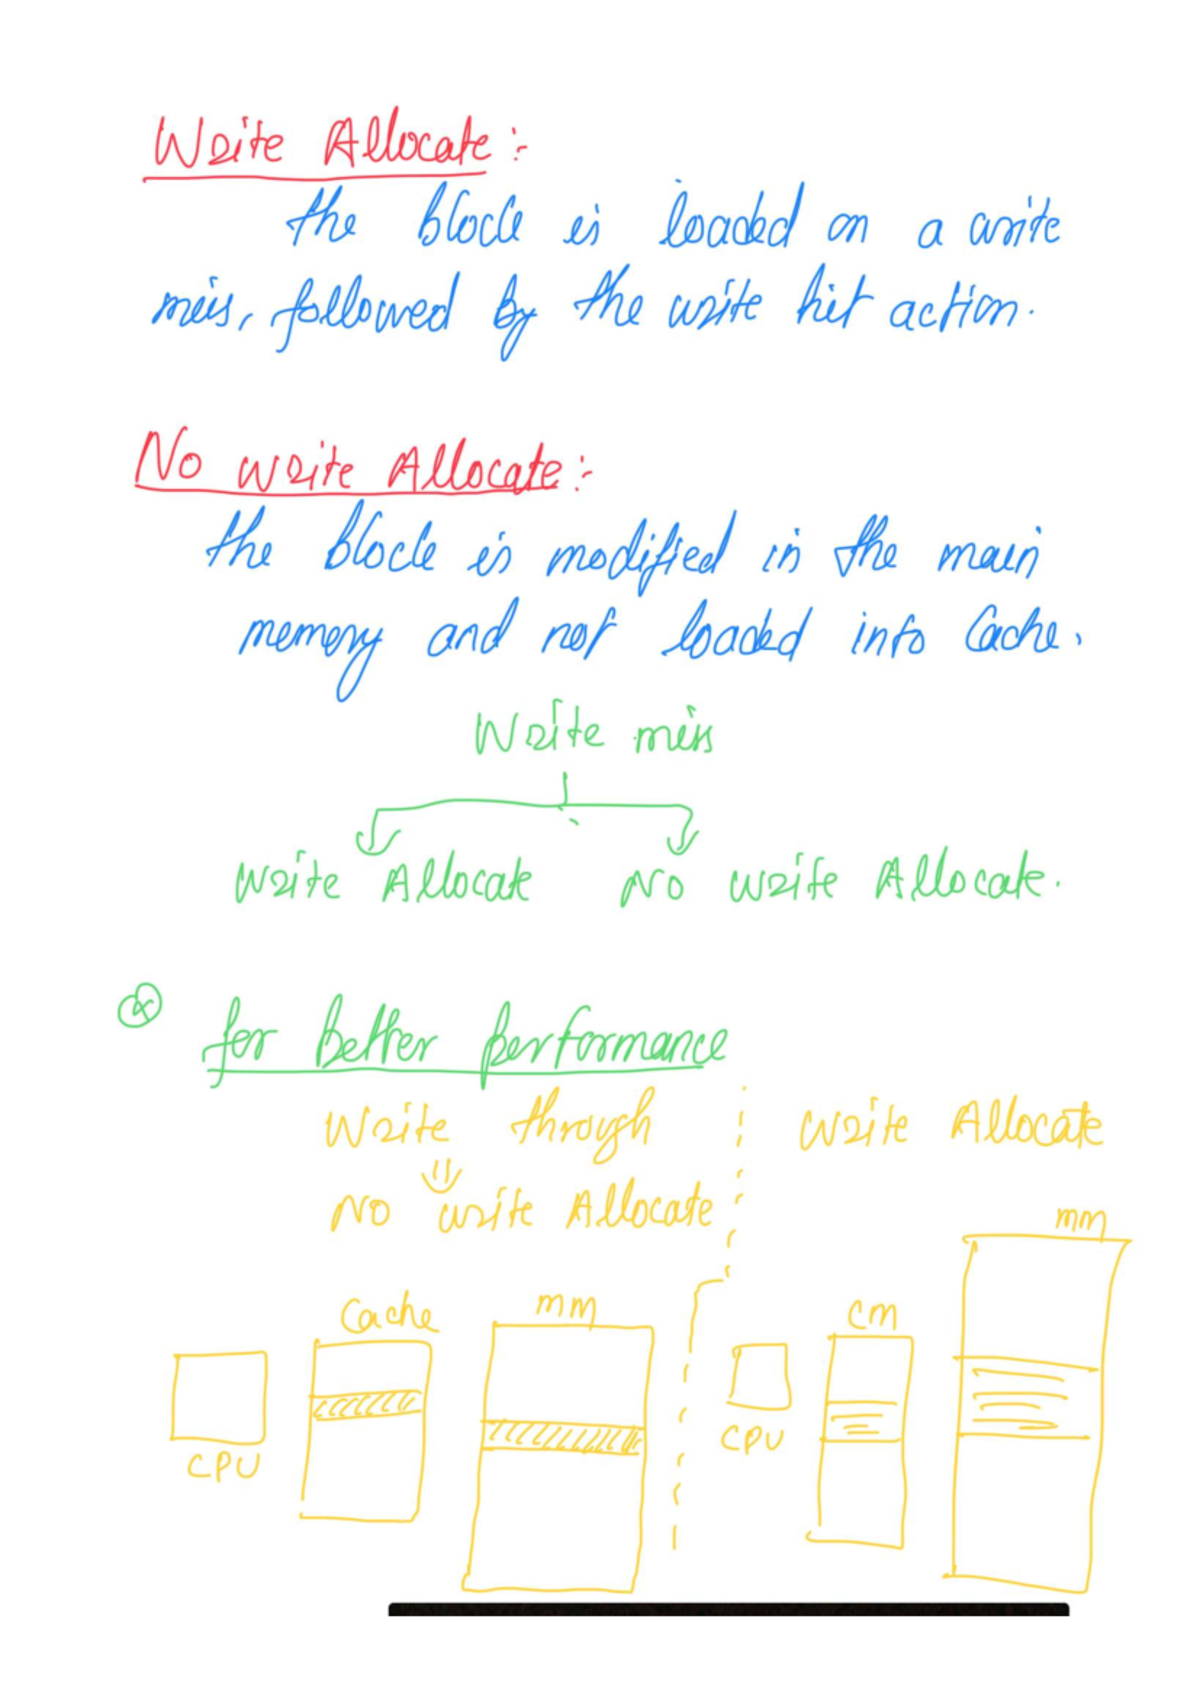 Write Allocate :-
the block is loaded on a write
miss, followed by the write hit action.
No write Allocate :-
the block is modified in the main
memory and not loaded into Cache.
Write miss
Write Allocate No write Allocate.
for better performance
Write through
No write Allocate
Cache
mm
CPU
Write Allocate
mm
CM
CPU